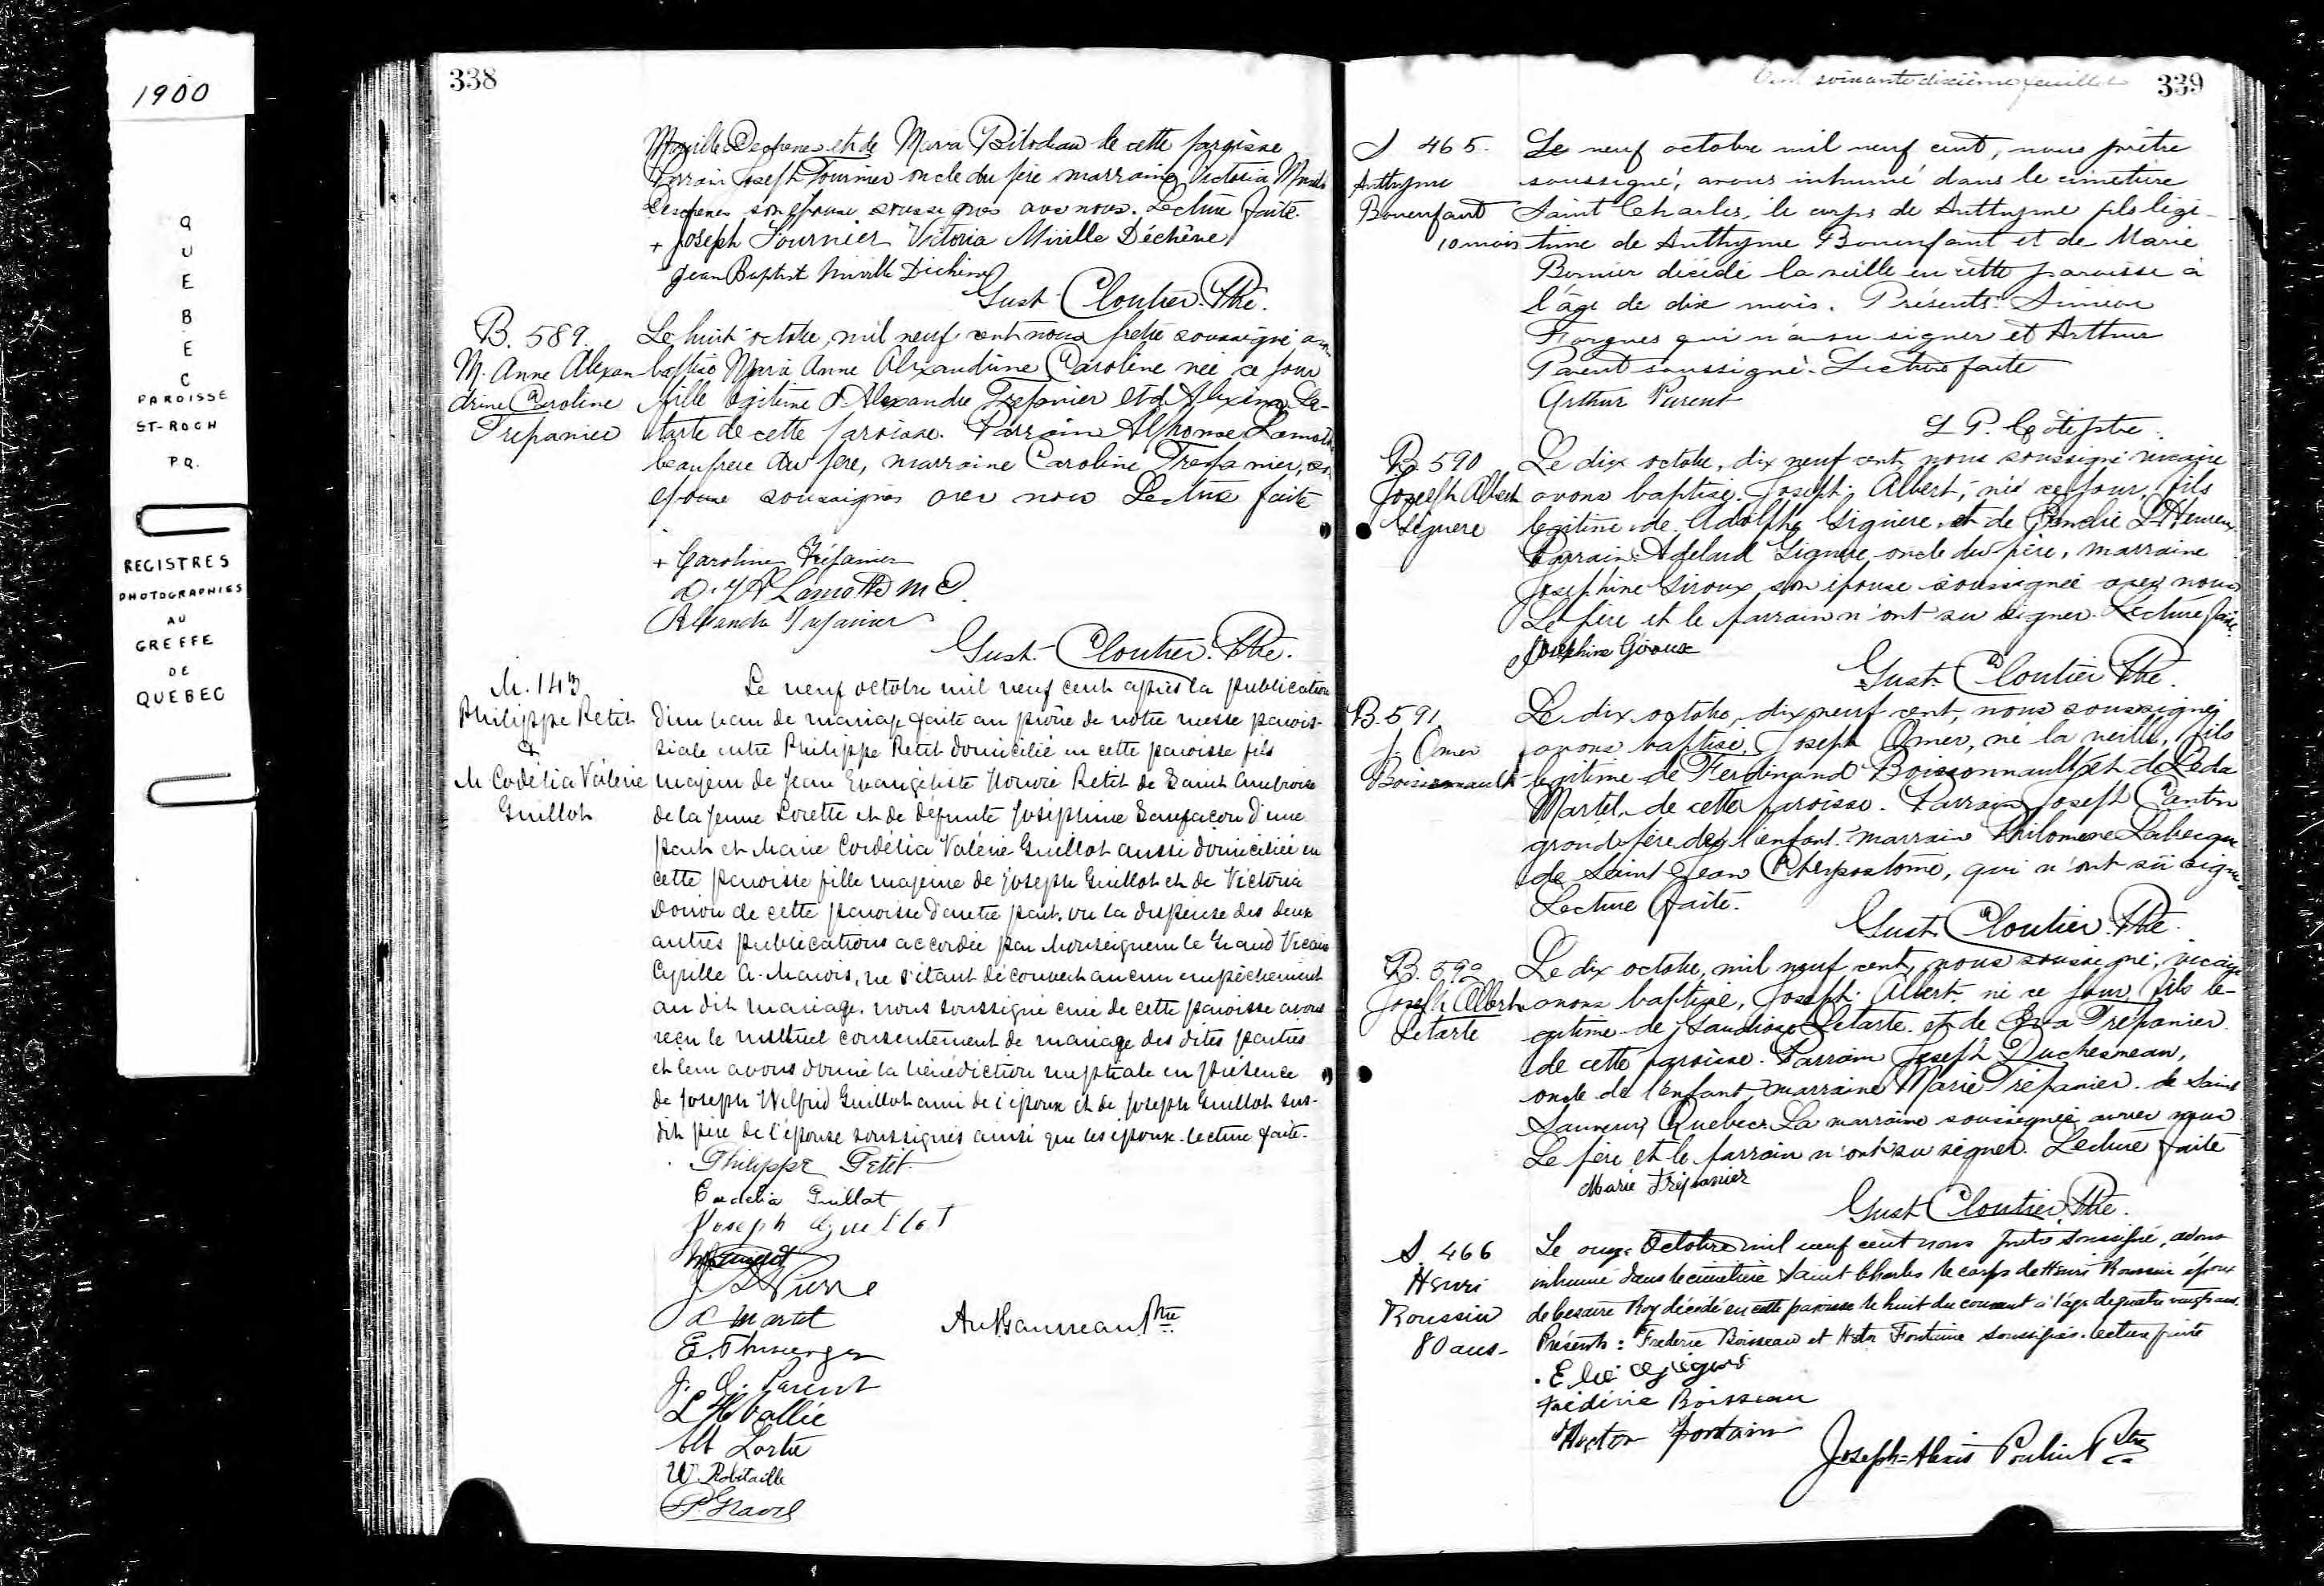 1900
QUEBEC
PAROISSE
ST-ROCH
P.Q.
REGISTRES
PHOTOGRAPHIES
AU
GREFFE
DE
QUEBEC
338
Miville Deschenes et de Maria Bilodeau de cette paroisse
Parrain Joseph Fournier oncle du père marraine Victoria Miville
Deschenes son épouse soussignés avec nous. Lecture faite.
+ Joseph Fournier Victoria Miville Déchêne
Jean Baptist Miville Dichene
Gust. Cloutier. Ptre.
B. 589.
M. Anne Alexan
drine Caroline
Trepanier
Le huit octobre, mil neuf cent nous pretre soussigné avons
baptisé Maria Anne Alexandrine Caroline née ce jour
fille légitime d'Alexandre Trepanier et d'Alexina Le-
tarte de cette paroisse. Parrain Alphonse Lamothe
beaufrere du père, marraine Caroline Trepanier, son
epouse soussignés avec nous Lecture faite
+ Caroline Trépanier
Lamothe M D.
Alexandre Trepanier
Gust. Cloutier. Ptre.
M. 143
Philippe Petit
&
M Cordélia Valérie
Guillot
Le neuf octobre mil neuf cent après la publication
d'un ban de mariage faite au prône de notre messe parois-
siale entre Philippe Petit domicilié en cette paroisse fils
majeur de Jean Evangéliste Honoré Petit de Saint Ambroise
de la Jeune Lorette et de défunte Joséphine Sanfaçon d'une
part et Marie Cordélia Valérie Guillot aussi domiciliée en
cette paroisse fille majeure de Joseph Guillot et de Victoria
Doiron de cette paroisse d'autre part, vu la dispense des deux
autres publications accordée par Monseigneur le Grand Vicaire
Cyrille A. Marois, ne s'étant découvert aucun empêchement
au dit mariage, nous soussigné curé de cette paroisse avons
reçu le mutuel consentement de mariage des dites parties
et leur avons donné la bénédiction nuptiale en présence
de Joseph Wilfrid Guillot ami de l'époux et de Joseph Guillot sus-
dit père de l'épouse soussignés ainsi que les époux. lecture faite.
Philippe Petit
Cordelia Guillot
Joseph Guillot
Pierre
A Martel
Ant Gauvreau Ptre
E.
J. O. Parent
L H Vallée
Alb Lortie
W. Robitaille
P Gravel
Cent soixante dixième feuillet 339
S 465.
Anthyme
Bonenfant
10 mois
Le neuf octobre mil neuf cent, nous prêtre
soussigné, avons inhumé dans le cimetière
Saint Charles, le corps de Anthyme fils légi-
time de Anthyme Bonenfant et de Marie
Bernier décédé la veille en cette paroisse à
l'âge de dix mois. Présents: Simeon
Forgues qui n'a su signer et Arthur
Parent soussigné. Lecture faite
Arthur Parent
L P. Côté ptre.
B. 590
Joseph Albert
Siguere
Le dix octobre, dix neuf cent, nous soussigné vicaire
avons baptisé, Joseph. Albert, né ce jour, fils
legitime de Adolphe Giguere, et de L'Heureux
Parrain Adelard Giguere oncle du père, marraine
Josephine Giroux, son épouse soussignée avec nous
Le père et le parrain n'ont su signer. Lecture faite.
Josephine Giroux
Gust. Cloutier Ptre.
B. 591
J. Omer
Boissonnault
Le dix octobre, dix neuf cent, nous soussigné
avons baptisé, Joseph Omer, né la veille, fils
legitime de Ferdinand Boissonnault et de Leda
Martel, de cette paroisse. Parrain Joseph Cantin
grand-père de l'enfant, marraine Philomene Labecque
de Saint Jean Chrysostome, qui n'ont sû signer
Lecture faite.
Gust. Cloutier. Ptre.
B. 592
Joseph Albert
Letarte
Le dix octobre, mil neuf cent, nous soussigné, vicaire
avons baptisé, Joseph. Albert, né ce jour, fils le-
gitime de Letarte et de Eva Trépanier
de cette paroisse. Parrain Joseph Duchesneau,
oncle de l'enfant, marraine Marie Trépanier. de Saint
Sauveur, Quebec. La marraine soussignée avec nous
Le père et le parrain n'ont su signer. Lecture faite
Marie Trépanier
Gust. Cloutier. Ptre.
S. 466
Henri
Roussin
80 ans.
Le onze Octobre mil neuf cent nous prêtre soussigné, avons
inhumé dans le cimetière Saint Charles le corps de Henri Roussin époux
de Cesarie Roy décédé en cette paroisse le huit du courant à l'âge de quatre vingts ans.
Présents: Frederic Boisseau et Hector Fontaine soussignés. lecture faite
Frédéric Boisseau
Hector Fontain
Joseph-Alexis Poulin Ptre